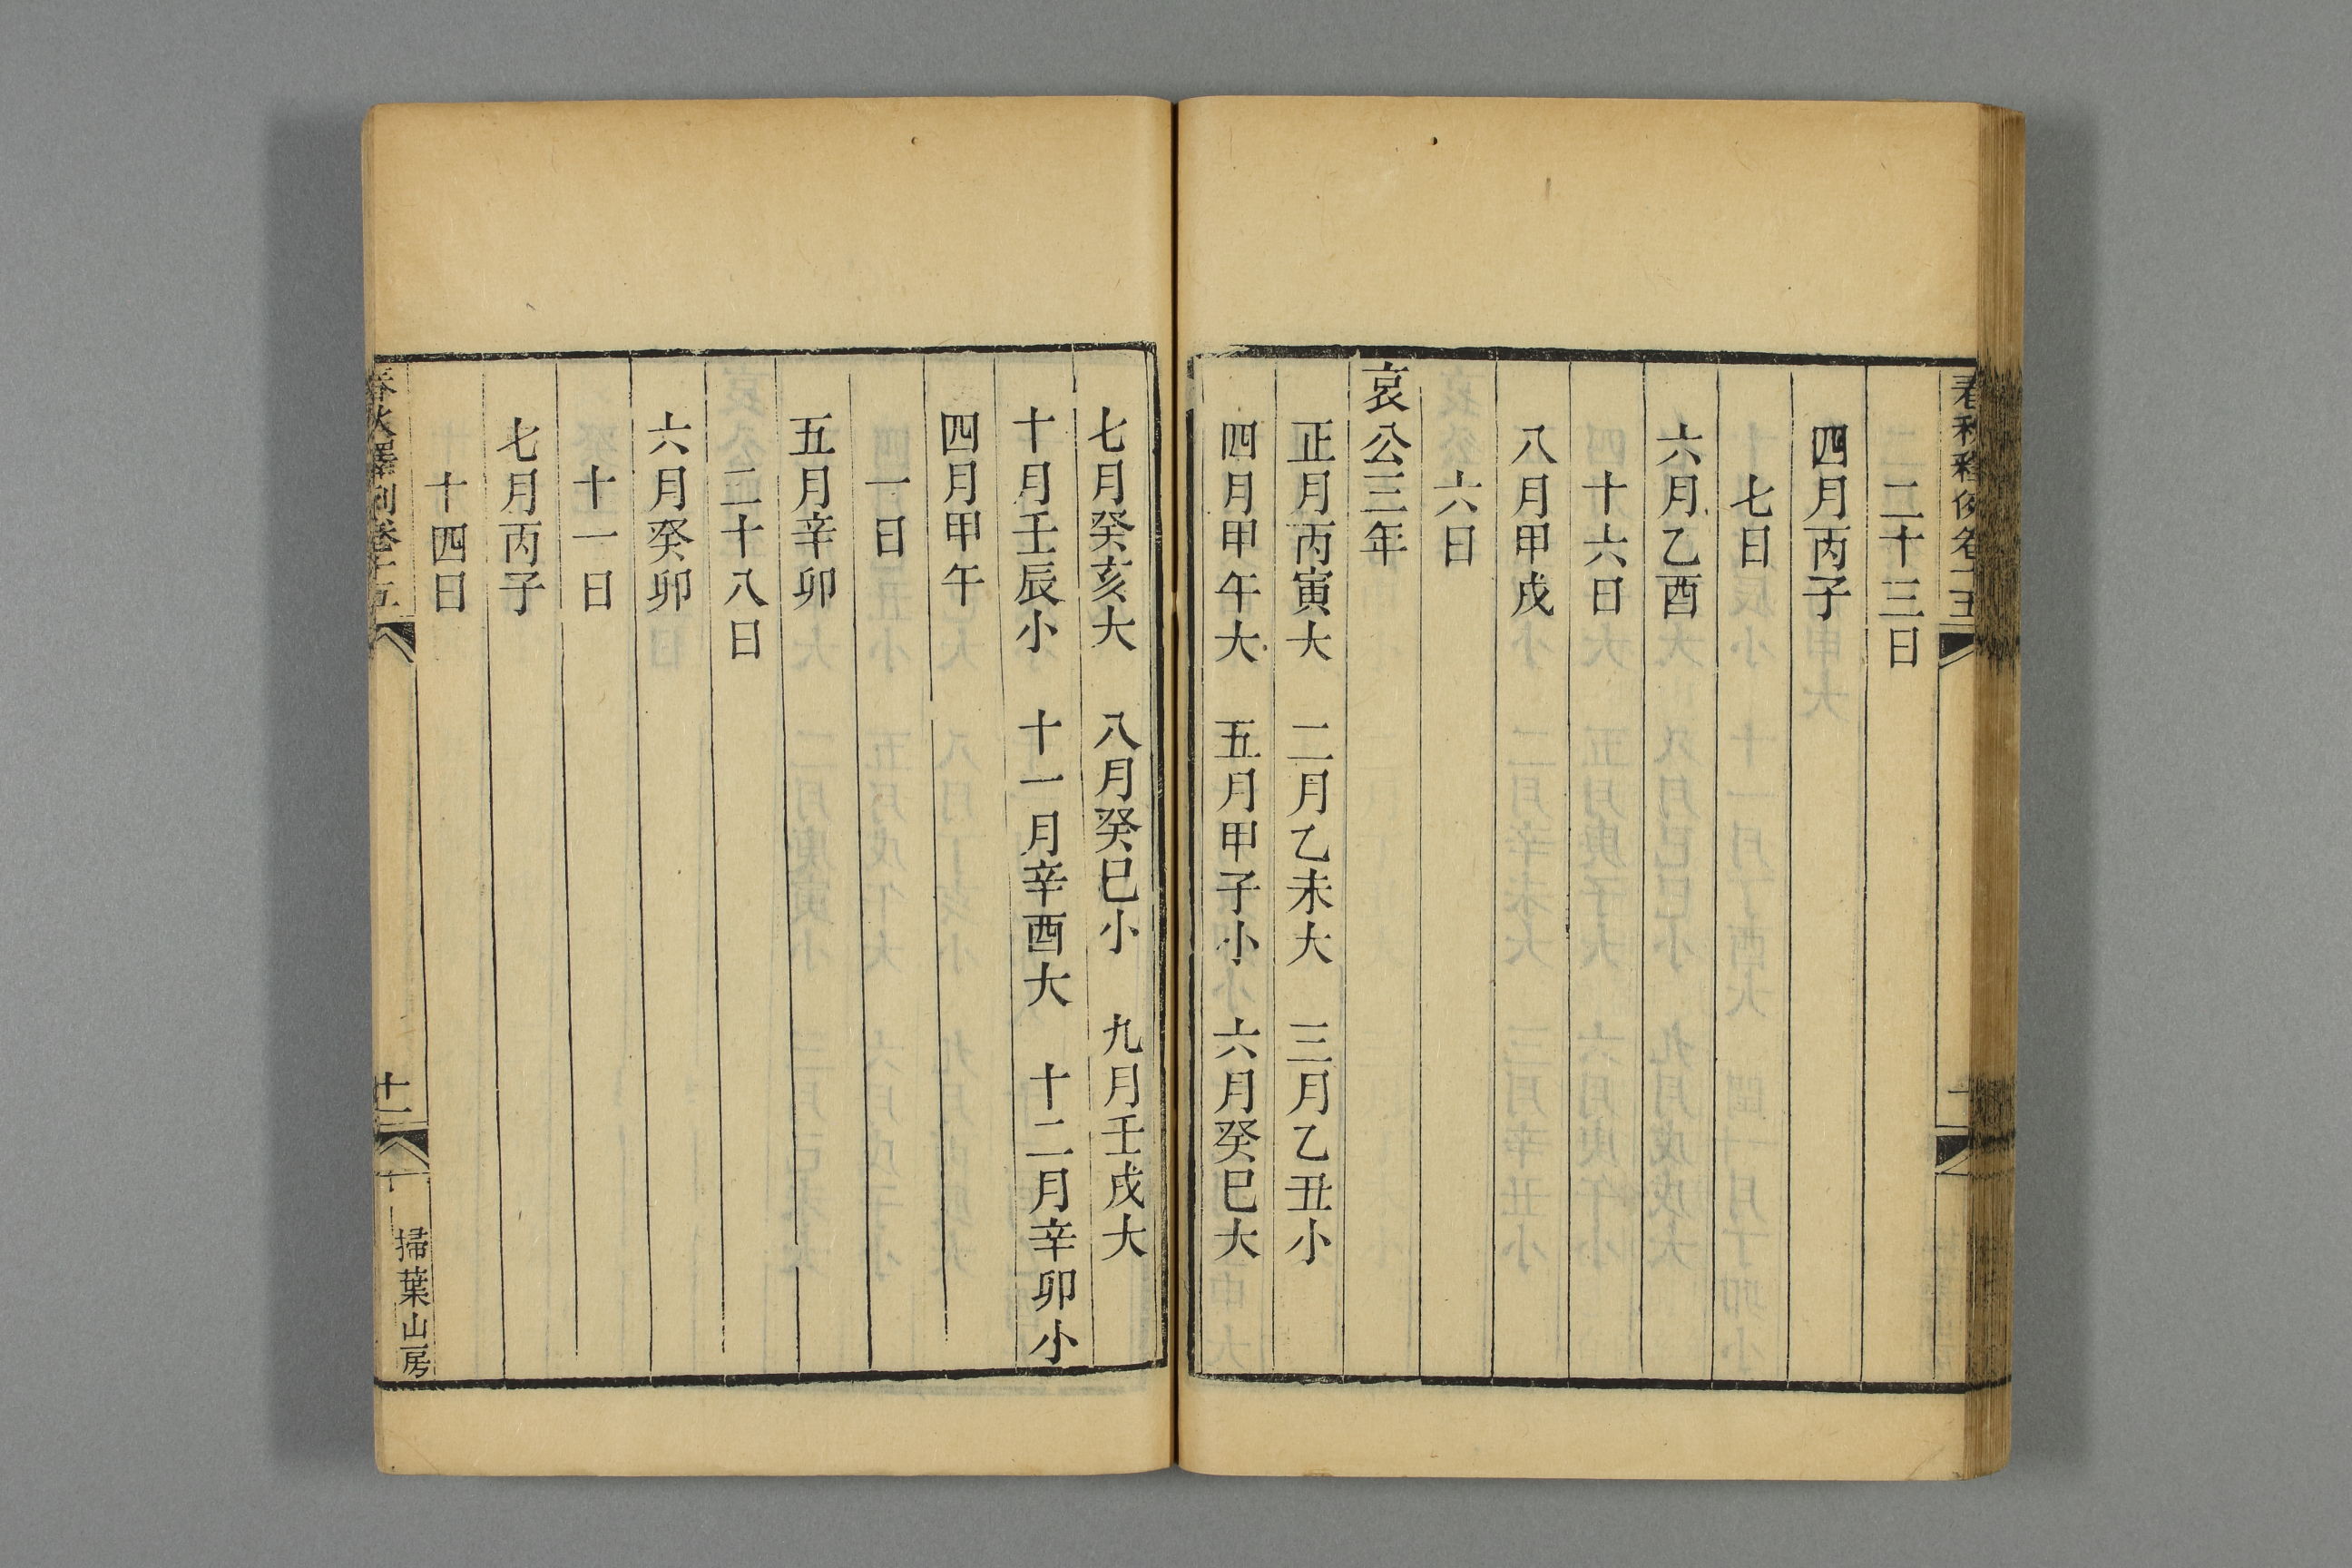 春秋釋例卷十五
二十三日
四月丙子
七日
六月乙酉
十六日
八月甲戌
六日
哀公三年
正月丙寅大　二月乙未大　三月乙丑小
四月甲午大　五月甲子小　六月癸巳大
七月癸亥大　八月癸巳小　九月壬戌大
十月壬辰小　十一月辛酉大　十二月辛卯小
四月甲午
一日
五月辛卯
二十八日
六月癸卯
十一日
七月丙子
十四日
春秋釋例卷十五
十二
掃葉山房